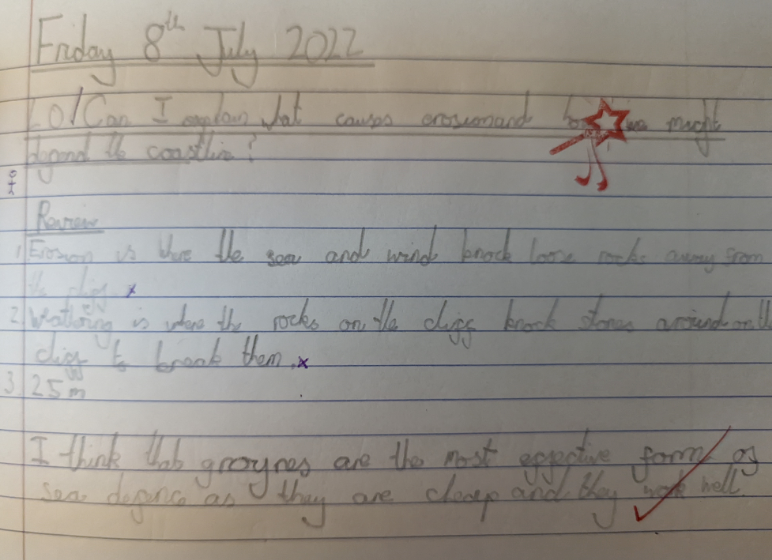 Friday 8th July 2022
LO/Can I explain what causes erosion and how we might
defend the coastline?
Review
1 Erosion is where the sea and wind knock loose rocks away from
the cliffs x
2 Weathering is where the rocks on the cliffs knock stones around on the
cliffs to break them. x
3 25m
I think that groynes are the most effective form of
sea defence as they are cheap and they work well.